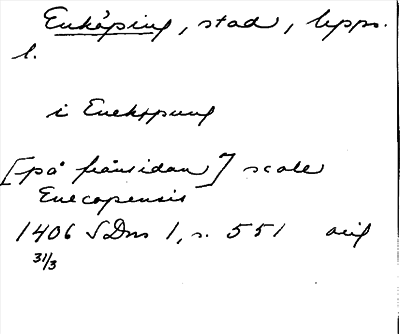 Enköping, stad, Upps.
l.
i Enekøpung
[på frånsidan] scole
Enecopensis
1406 SDns 1, s. 551 orig
31/3